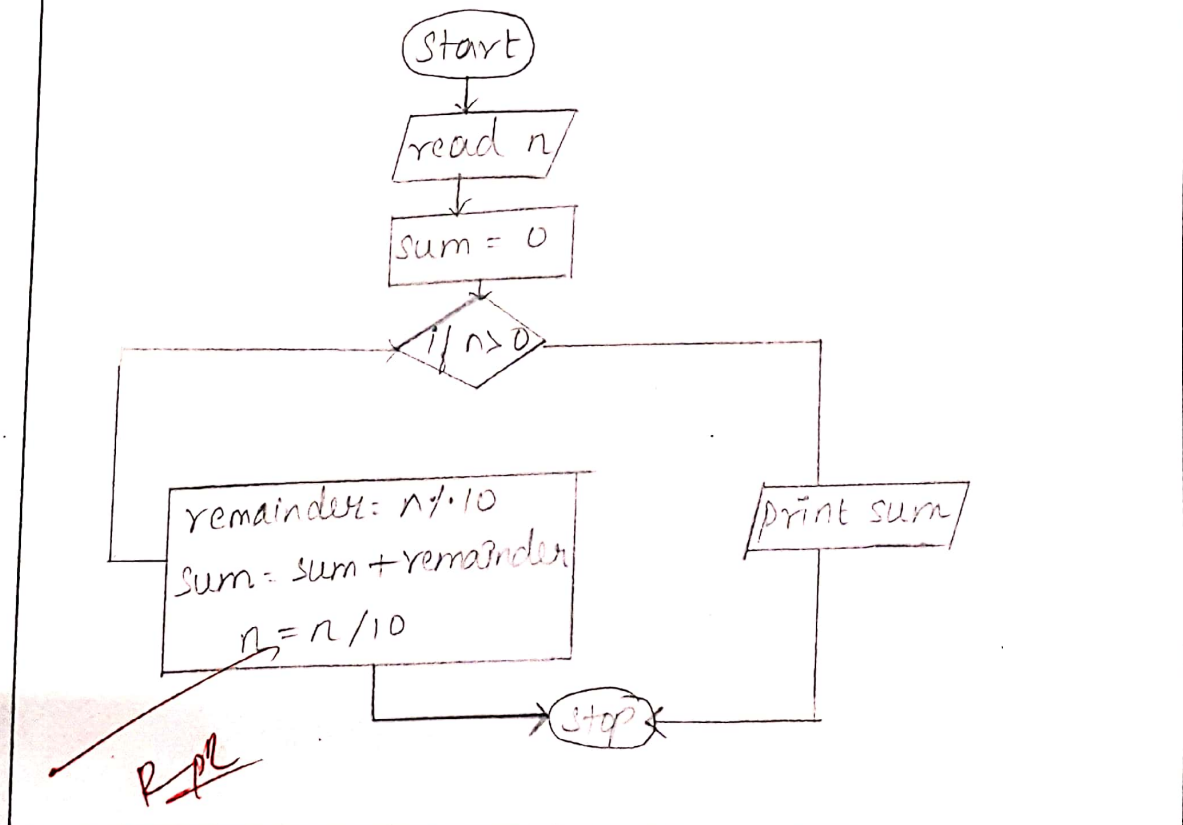 Start
read n
sum = 0
if n>0
remainder= n%10
sum= sum+remainder
n=n/10
print sum
stop